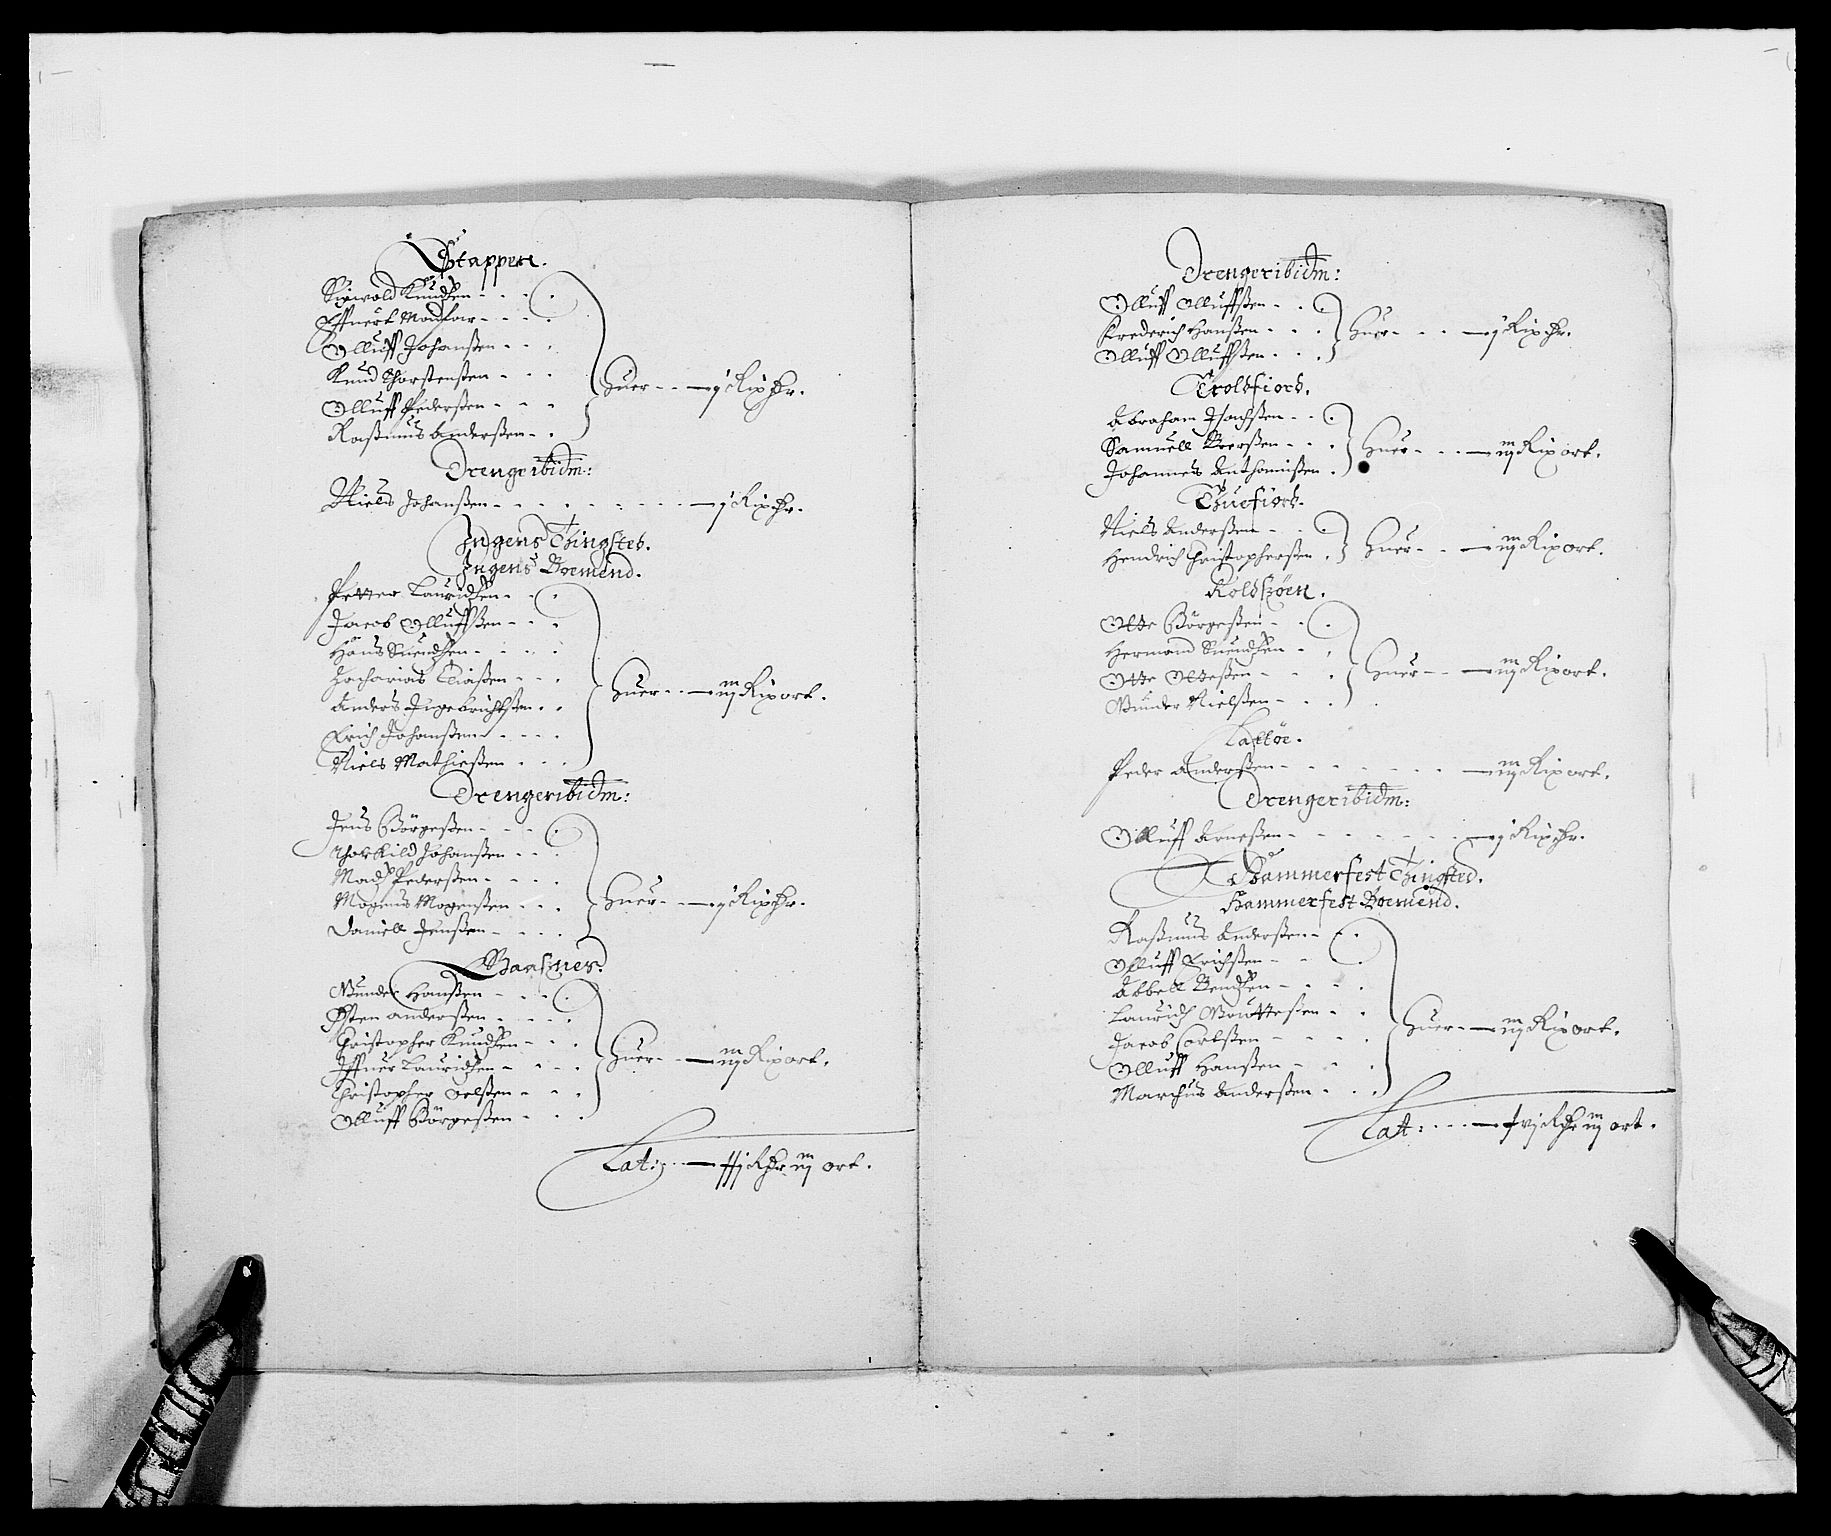 Stappen.
Siwold Knudsen
Effuert
Olluff Johanßen
Knud Thorstensen
Olluff Pederßen
Raßmus Anderßen
huer — j Rixdr.
Drenger ibidm:
Niels Johanßen — j Rixdr.
Ingens Thingsted.
Ingens Boemend.
Petter Lauridsen
Jacob Olluffßen
Hans Suendsen
Zacharias Eliaßen
Anders Ingebrichtsen
Erich Johanßen
Niels Mathießen
huer — iij Rixort.
Drenger ibidm:
Jens Börgeßen
Thorkild Johanßen
Mads Pederßen
Mogens Mogenßen
Daniell Jenßen
huer — j Rixdr.
Baasnes.
Gunder Hanßen
Østen Anderßen
Christopher Knudsen
Iffuer Lauridsen
Christopher Oelßen
Olluff Börgeßen
huer — iij Rixort.
Lat: — Rdr iij ort.
Drenger ibidm:
Olluff Olluffßen
Frederich Hanßen
Olluff Olluffßen
huer — j Rixdr.
Troldfiord.
Abraham Isachßen
Samuell Iverßen
Johannes Anthonißen
huer — iij Rixort.
Thuefiord.
Niels Anderßen
Hendrich Christopherßen
huer — iij Rixort.
Roldsøen.
Otte Börgeßen
Hermand Suendsen
Otte Otteßen
Gunder Nielßen
huer — iij Rixort.
Latøe.
Peder Anderßen — iij Rixort.
Drenger ibidm:
Olluff Arneßen — j Rixdr.
Hammerfest Thingsted.
Hammerfest Boemend.
Raßmus Anderßen
Olluff Erichßen
Abbell Bendsen
Lauridz Goutteßen
Jacob Carlßen
Olluff Hanßen
Marchus Anderßen
huer — iij Rixort.
Latt: — Rdr iij ort.